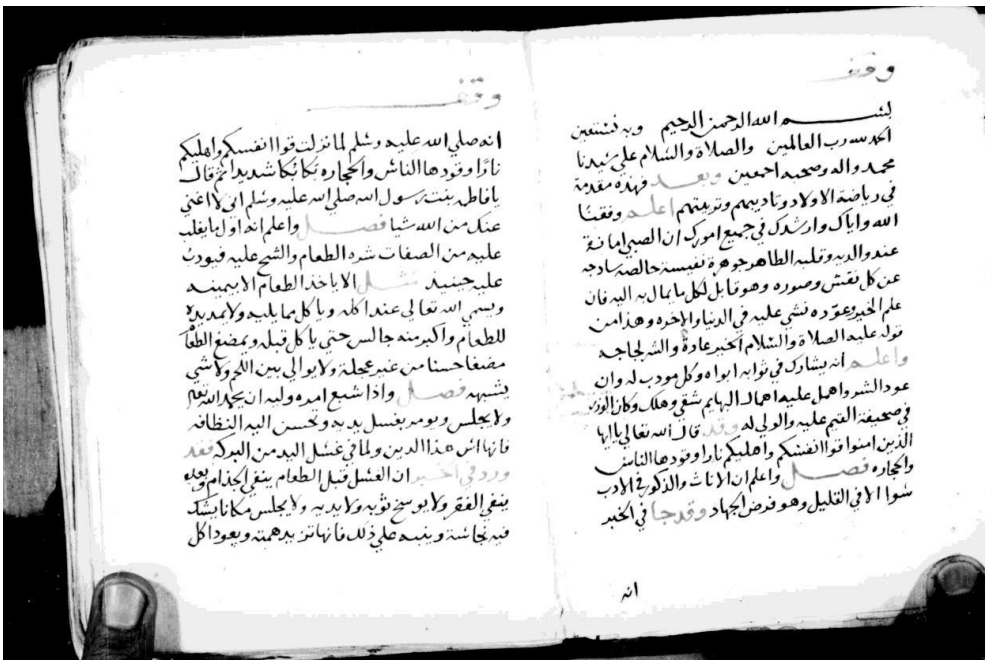 وقف
بسم الله الرحمن الرحيم وبه نستعين
الحمد لله رب العالمين والصلاة والسلام على سيدنا
محمد واله وصحبه اجمعين وبعد فهذه مقدمة
في رياضة الاولاد وتاديبهم وتربيتهم اعلم وفقنا
الله واياك وارشدك في جميع امورك ان الصبي امانة
عند والديه وقلبه الطاهر جوهرة نفيسة خالصه سادجه
عن كل نقش وصوره وهو قابل لكل ما يمال به اليه فان
علم الخير وعوده نشي عليه في الدنيا والاخره وهذا من
قوله عليه الصلاة والسلام الخير عادة والشر لجاجه
واعلم انه يشارك في ثوابه ابواه وكل مودب له وان
عود الشر واهمل عليه اهمال البهايم شقي وهلك وكان الوزر
في صحيفة القيم عليه والولي له وقد قال الله تعالى ياايها
الذين امنوا قوا انفسكم واهليكم نارا وقودها الناس
والحجاره فصل واعلم ان الاناث والذكور في الادب
سوا الا في القليل وهو فرض الجهاد وقد جا في الخبر
انه
وقف
انه صلي الله عليه وسلم لما نزلت قوا انفسكم واهليكم
نارًا وقودها الناس والحجاره بكا بُكا شديدا ثم قال
يا فاطمه بنت رسول الله صلي الله عليه وسلم اني لا اغني
عنك من الله شيا فصل واعلم انه اول ما يغلب
عليه من الصفات شره الطعام والشح عليه فيودب
عليه حينيذ مثل الا ياخذ الطعام الا بيمينه
ويسمي الله تعالي عند اكله وياكل مما يليه ولا يمد يده
للطعام واكبر منه جالس حتي ياكل قبله ويمضغ الطعام
مضغا حسنا من غير عجلة ولا يوالي بين اللقم ولا شي
يشبهه فصل واذا شبع امره وليه ان يحمد الله تعالى
ولا يجلس ويومر بغسل يديه وتحسن اليه النظافه
فانها اس هذا الدين ولما في غسل اليد من البركه فقد
ورد في الخبر ان الغسل قبل الطعام ينفي الجذام وبعده
ينفي الفقر ولا يوسخ ثوبه ولا يديه ولا يجلس مكانا يشك
فيه نجاسة وينبه علي ذلك فانها تزيد همته ويعود اكل